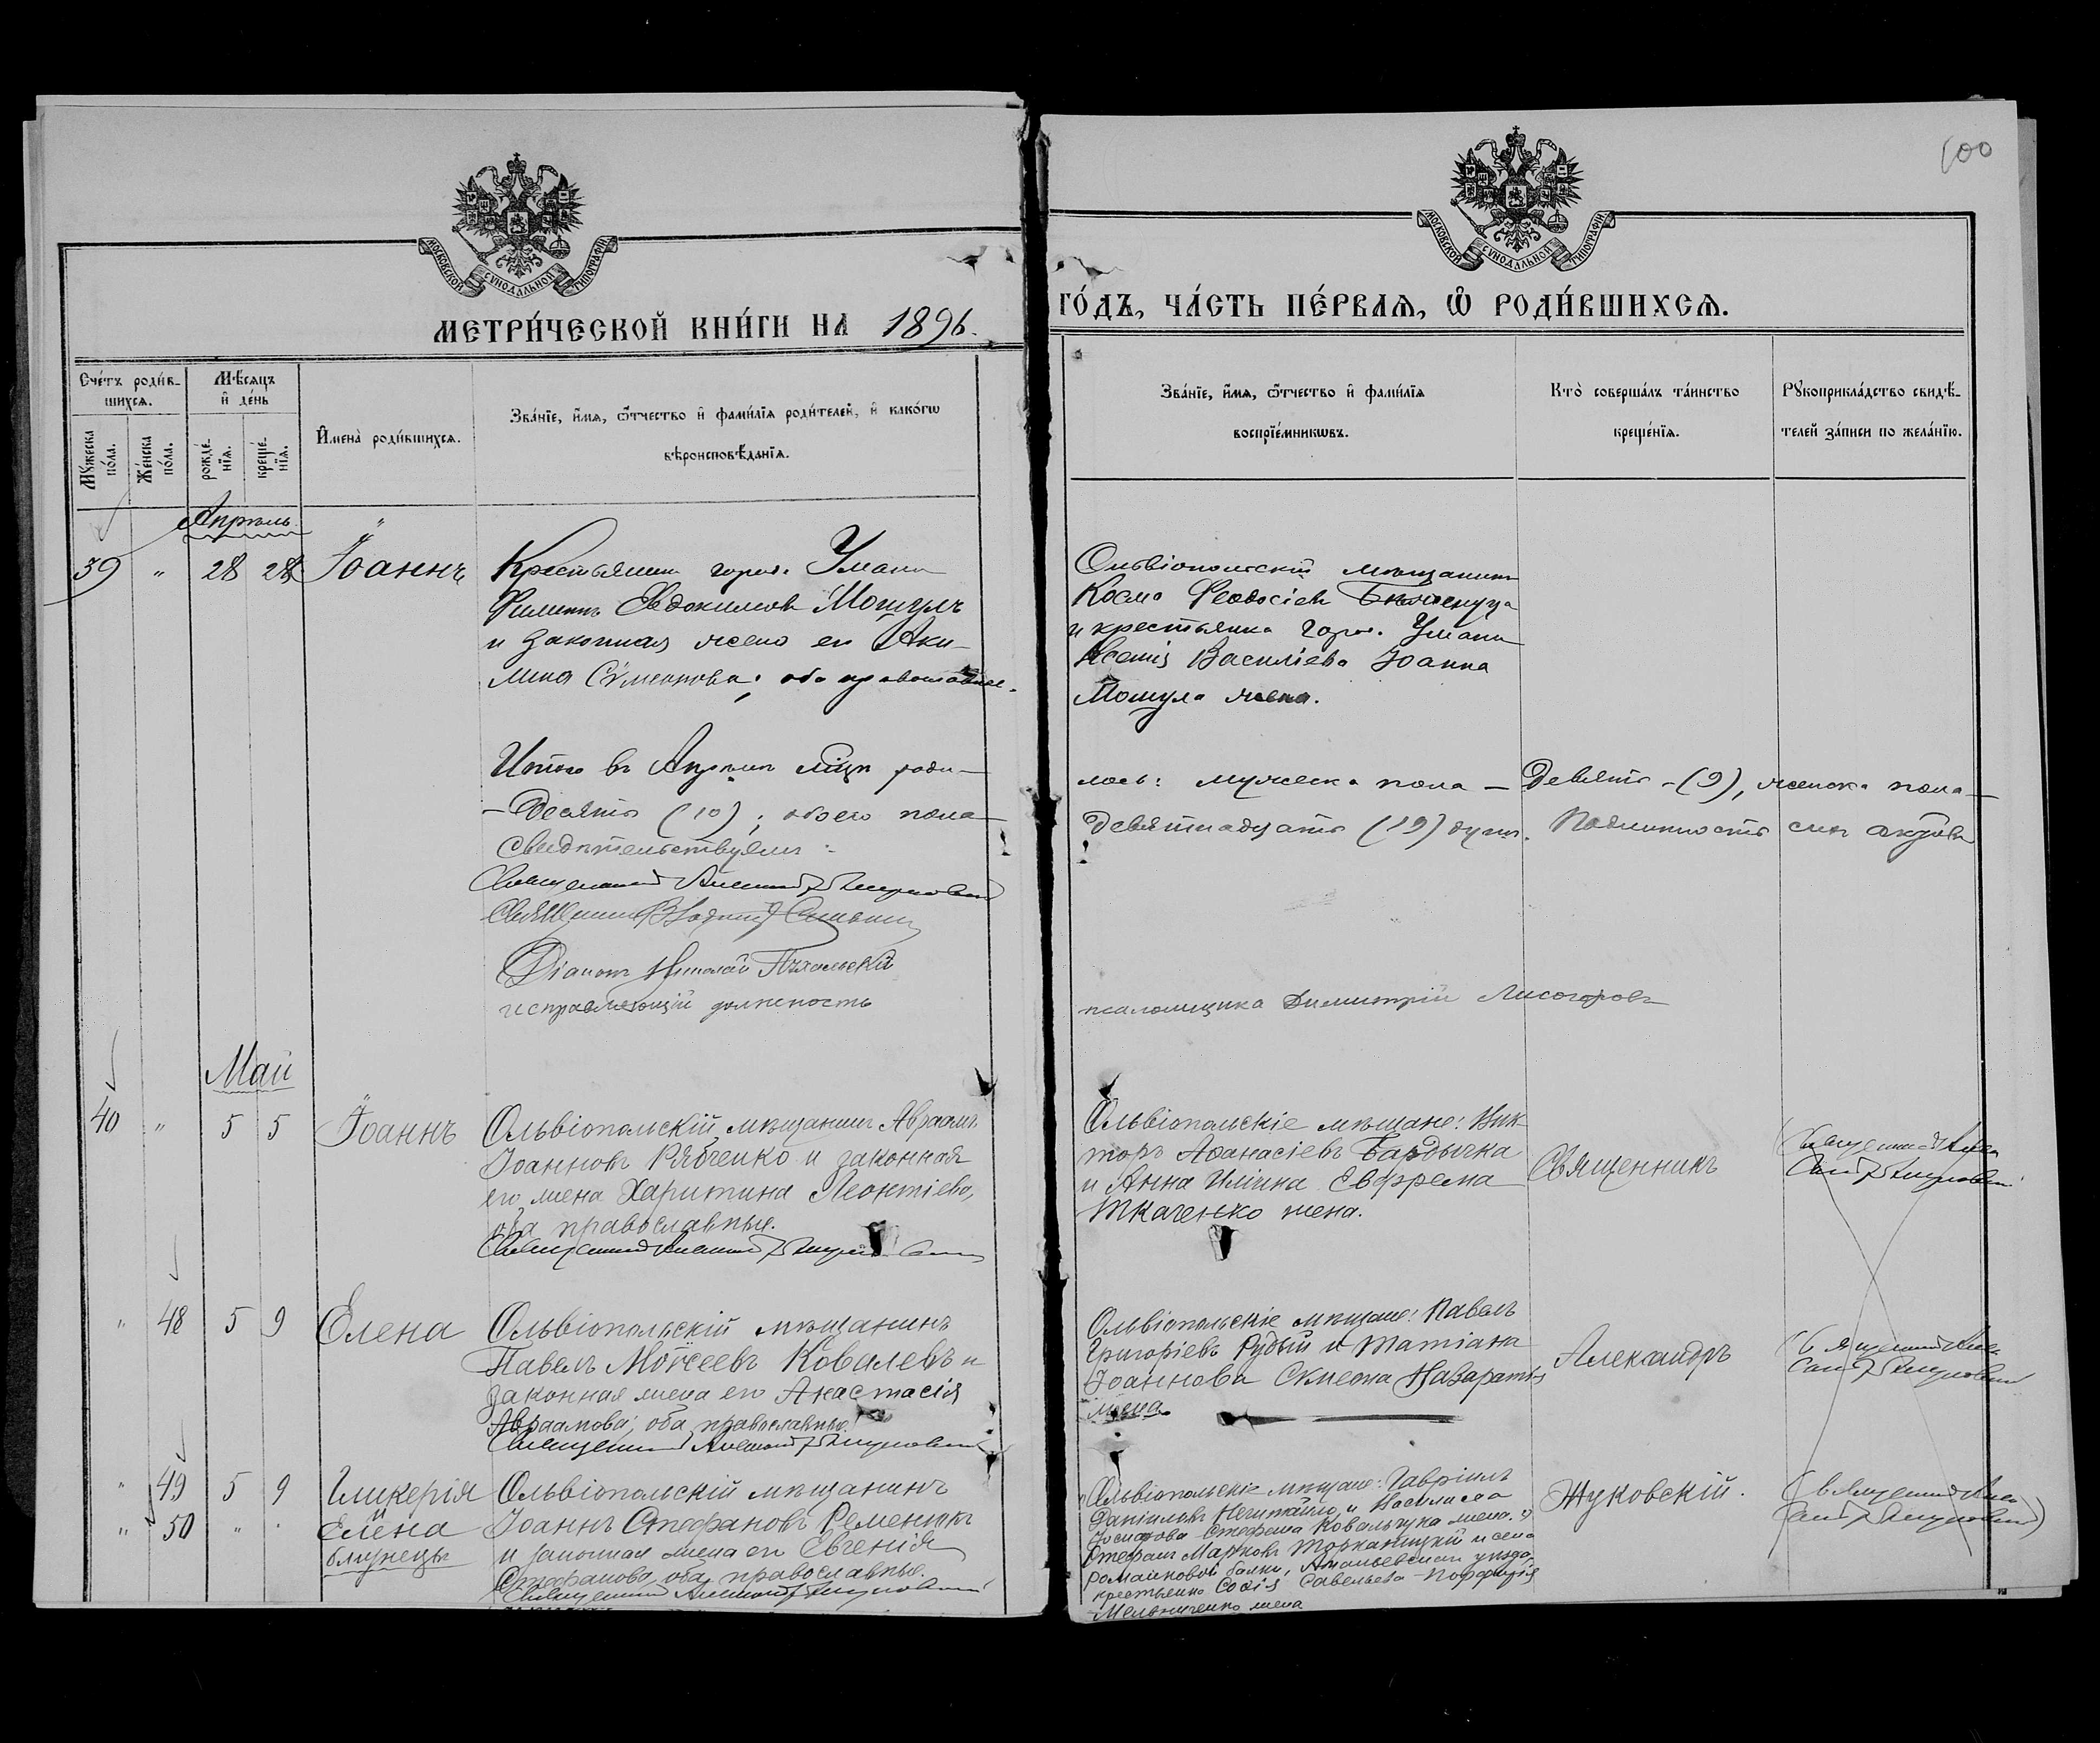 100
МОСКОВСКОЙ СУНОДАЛЬНОЙ ТИПОГРАФІИ
МОСКОВСКОЙ СУНОДАЛЬНОЙ ТИПОГРАФІИ
МЕТРИ́ЧЕСКОЙ КНИ́ГИ НА 1896.
ГО́ДЪ, ЧА́СТЬ ПЕ́РВАѦ, Ѽ РОДИ́ВШИХСѦ.
Сче́тъ роди́в-
шихсѧ.
Мꙋжеска по́ла.
Же́нска по́ла.
Мѣ́сѧцъ
и҆ де́нь
рожде́-
нїѧ.
креще́-
нїѧ.
И҆мена̀ роди́вшихсѧ.
Зва́нїе, и҆́мѧ, ѻ҆́тчество и҆ фами́лїѧ роди́телей, и҆ како́гѡ
вѣроисповѣ́данїѧ.
Зва́нїе, и҆́мѧ, ѻ҆́тчество и҆ фами́лїѧ
воспрїе́мникѡвъ.
Кто̀ соверша́лъ та́инство
креще́нїѧ.
Рꙋкоприкла́дство свидѣ́-
телей за́писи по жела́нїю.
Апрѣль
39 " 28 28 Іоаннъ
Крестьянинъ город. Умани
Филиппъ Евдокимовъ Мошулъ
и законная жена его Аки-
лина Сумеонова; оба православные.
Ольвіопольскій мѣщанинъ
Косма Ѳеодосіевъ
и крестьянка город. Умани
Ксенія Василіева Іоанна
Мошула жена.
Итого въ Апрѣлѣ мцѣ роди-
лось: мужеска пола — Девять — (9), женска пола —
— Десять (10); обоего пола —
Девятнадцать (19) душъ. Подлинность сихъ актовъ
свидѣтельствуемъ:
Священникъ Александръ Жуковскій
Священникъ
Діаконъ Николай
исправляющій должность
псаломщика Димитрій Лисогоровъ
Май
40 " 5 5 Іоаннъ
Ольвіопольскій мѣщанинъ Авраамъ
Іоанновъ Рябченко и законная
его жена Харитина Леонтіева,
оба православные.
Священникъ Александръ Жуковскій
Ольвіопольскіе мѣщане: Вик-
торъ Аѳанасіевъ Бардычка
и Анна Иліина Ефрема
Ткаченко жена.
Священникъ
Священникъ Алек
сандръ Жуковскій
" 48 5 9 Елена
Ольвіопольскій мѣщанинъ
Павелъ Моѵсеевъ Ковалевъ и
законная жена его Анастасія
Авраамова; оба православные.
Священникъ Александръ Жуковскій
Ольвіопольскіе мѣщане: Павелъ
Григоріевъ Рудый и Татіана
Іоаннова Назарать
жена
Александръ
Священникъ Алек
сандръ Жуковскій
" 49 5 9 Гликерія
" 50 " " Елена
близнецы
Ольвіопольскій мѣщанинъ
Іоаннъ Стефановъ Ременюкъ
и законная жена его Евгенія
Стефанова, оба православные.
Священникъ Александръ Жуковскій
Ольвіопольскіе мѣщане: Гавріилъ
Даніиловъ Нечитайло и Василисса
Іосифова Стефана Ковальчука жена. 2)
Стефанъ Марковъ и села
Романковой балки, Ананьевскаго уѣзда,
крестьянка Софія Савельева Порфирія
Мельниченко жена
Жуковскій.
Священникъ Алек
сандръ Жуковскій